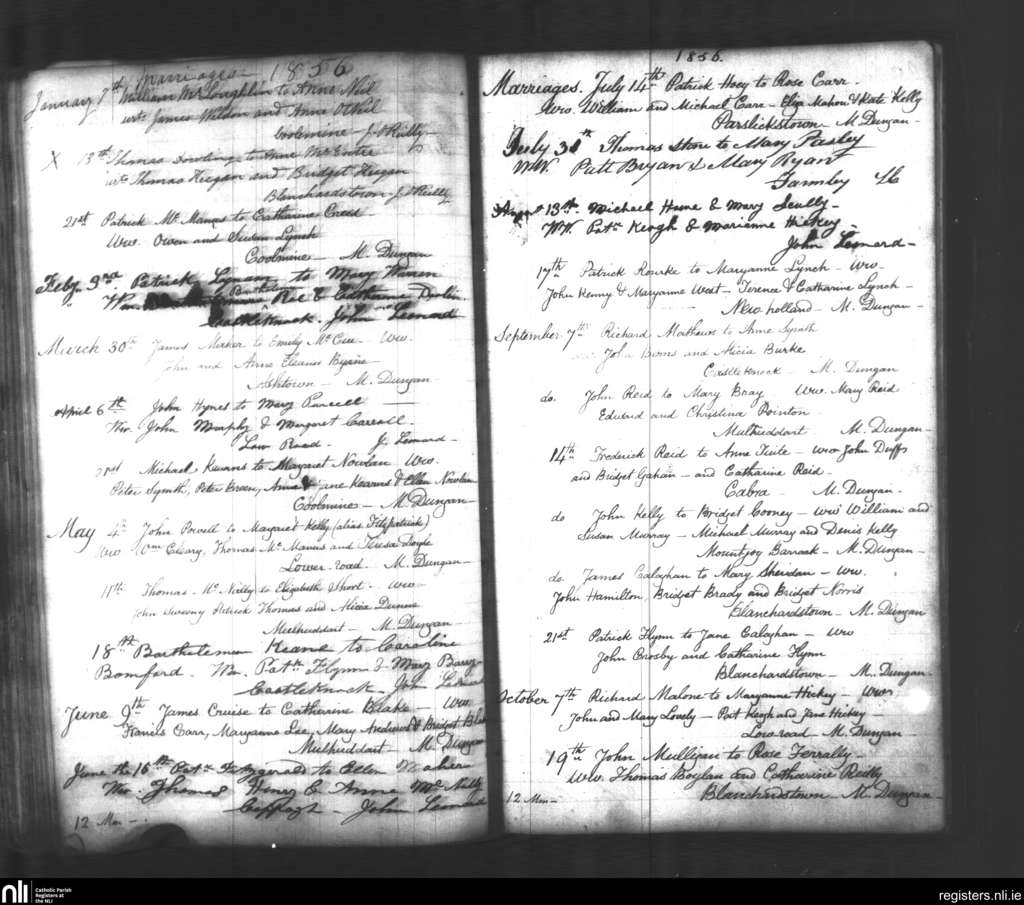 Marriages 1856
January 7th William McLoughlin to Anne Neil
wts James Weldon and Anne O'Neil
Coolmine - J. O'Reilly
X 13th Thomas Dowling to Anne McEntee
wts Thomas Keegan and Bridget Keegan
Blanchardstown J. O'Reilly
21st Patrick McManus to Catharine Creed
Wws. Owen and Susan Lynch
Coolmine - M. Dungan
Feby. 3rd. Patrick to Mary
Ww. & Catherine Devlin
Castleknock. John Leonard
March 30th James Maher to Emily McCue - Ww.
John and Anne Eleanor Byrne
Ashtown - M. Dungan
April 6th John Hynes to Mary Purcell -
Ww. John Murphy & Margaret Carroll.
Low Road. J. Leonard -
21st Michael Kearns to Margaret Nowlan Wws.
Peter Smyth, Peter Jane Kearns & Ellen Nowlan
Coolmine - M. Dungan
May 4th John Powell to Margaret Kelly (alias Fitzpatrick)
Wws Wm Cleary, Thomas McManus and Teresa Doyle
Lower road. M. Dungan -
11th Thomas McNally to Elizabeth Short. Ww-
John Sweeny Patrick Thomas and Alicia Dunne
Mulhuddart - M. Dungan
18th Bartholemew Keane to Caroline
Bomford. Ww. Patk Flynn & Mary Barry
Castleknock John
June 9th James Cruise to Catherine Blake - Ww
Francis Carr, Maryanne Lee, Mary Andrews & Bridget
Mulhuddart - M. Dungan
June the 16th Patk Fitzgerald to Ellen Maher
Ww. Thomas Henry & Anne McNally
Cappogh - John Leonard
12 Mar -
1856.
Marriages. July 14th Patrick Hoey to Rose Carr.
Wws. William and Michael Carr - Eliza Mahon & Kate Kelly
Parslickstown - M. Dungan -
July 31th Thomas to Mary Pasley
WW. Patt Bryan & Mary Ryan
Farmley
August 13th. Michael & Mary Scully -
WW. Patk Keogh & Marianne Hickey
John Leonard -
17th Patrick Rourke to Maryanne Lynch - Ww.
John Kenny & Maryanne West - Terence & Catharine Lynch -
New holland - M. Dungan -
September 7th Richard Mathews to Anne
John Burns and Alicia Burke
Castleknock - M. Dungan
do. John Reid to Mary Bray Ww. Mary Reid
Edward and Christina Pointon
Mulhuddart M. Dungan -
14th Frederick Reid to Anne Tuite - ww John Duffy
and Bridget Gahan - and Catharine Reid -
Cabra - M. Dungan -
do John Kelly to Bridget Cooney - Ww William and
Susan Murray - Michael Murray and Denis Kelly
Mountjoy Barrack - M. Dungan -
do. James Calaghan to Mary Sheridan - Ww.
John Hamilton, Bridget Brady and Bridget Norris
Blanchardstown - M. Dungan
21st Patrick Flynn to Jane Calaghan - Ww
John Crosby and Catharine Flynn
Blanchardstown - M. Dungan
October 7th Richard Malone to Maryanne Hickey - Wws
John and Mary Lovely - Pat Keogh and Jane Hickey -
Low road - M. Dungan -
19th John Mulligan to Rose Ferrally -
Ww. Thomas Boylan and Catharine Reilly
Blanchardstown - M. Dungan -
12 Mar -
nli Catholic Parish
Registers at
the NLI
registers.nli.ie